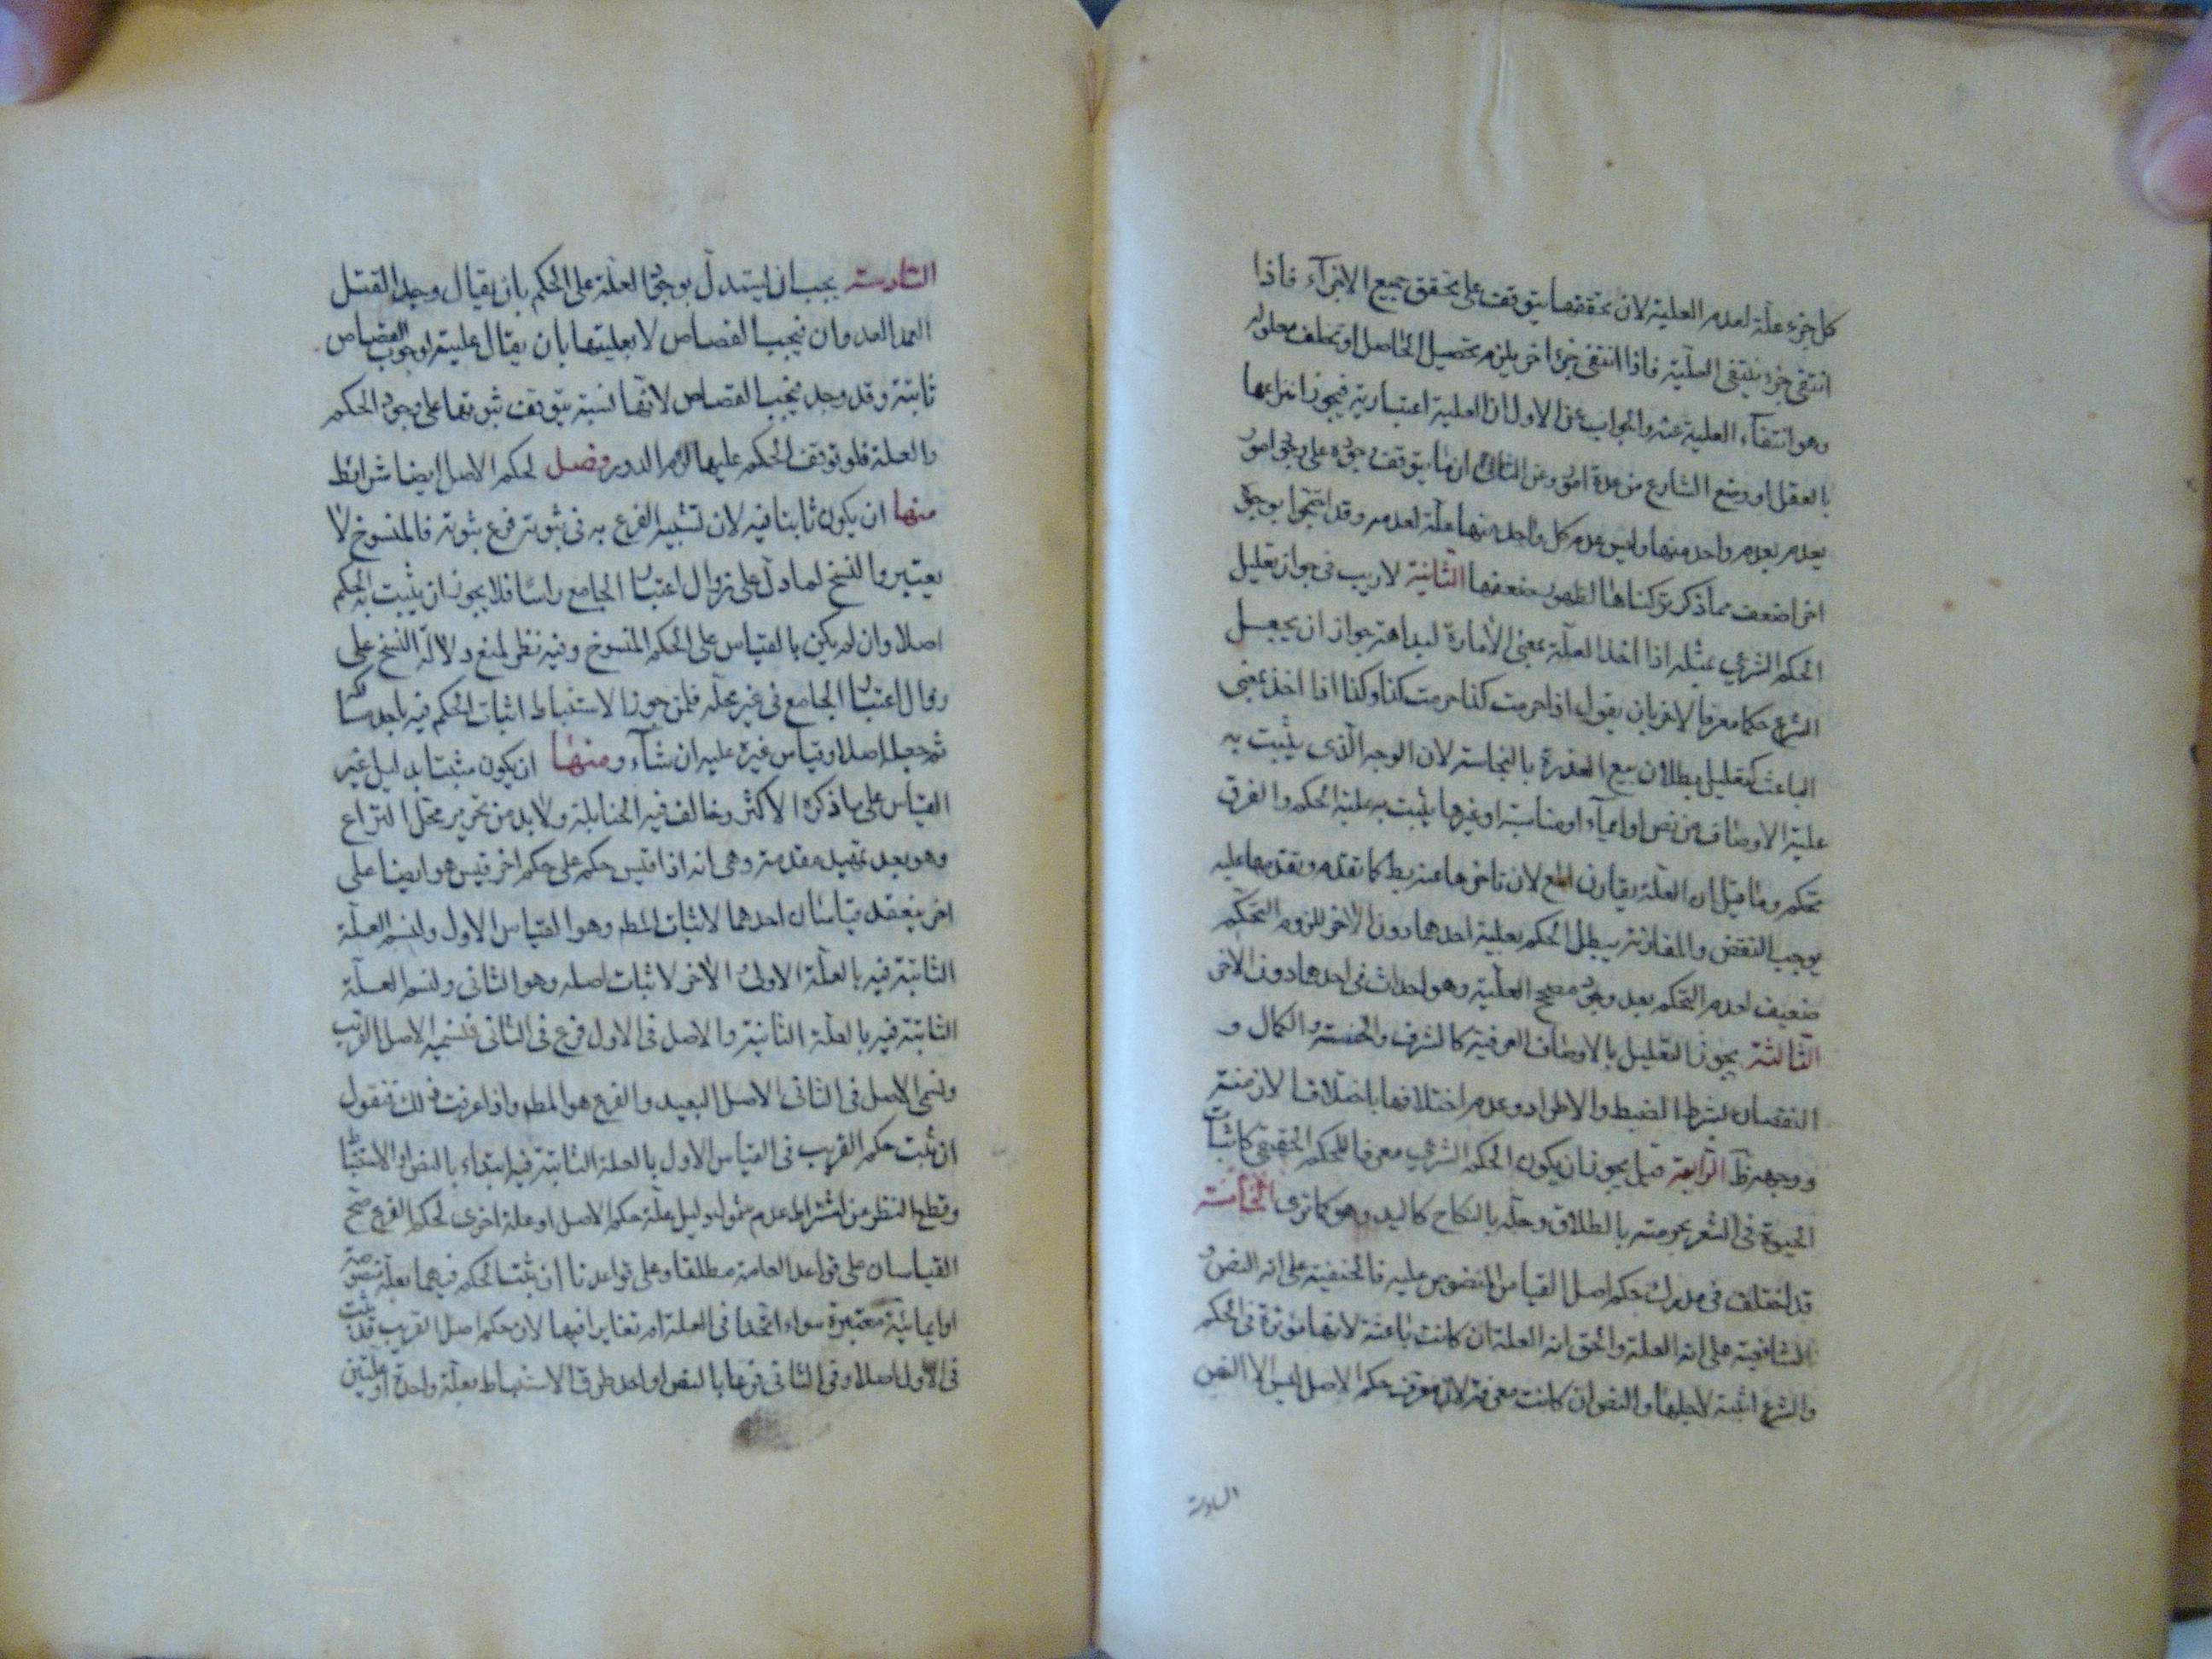 كل جزء علّة لعدم العلية لان تحققها يتوقف على تحقق جميع الاجزآء فاذا
انتفى جزء ينتفى العلّية فاذا انتفى جزء اخر يلزم تحصيل الحاصل او تخلف معلوله
وهو انتفآء العلية عنه والجواب عن الاول ان العلية اعتبارية فيجوز انتزاعها
بالعقل او وضع الشارع من عدة امور وعن الثانى ان ما يتوقف وجوده على وجود امور
يعدم بعدم واحد منها وليس عدم كل واحد منها علّة لعدمه وقد احتجّوا بوجوه
اخر اضعف مما ذكر تركناها لظهور ضعفها الثانية لا ريب فى جواز تعليل
الحكم الشرعي بمثله اذا اخذ العلّة بمعنى الأمارة لبداهة جواز ان يجعل
الشرع حكما معرفا لاخر بان يقول اذا حرمت كذا حرمت كذا وكذا اذا اخذ بمعنى
الباعث كتعليل بطلان بيع العذرة بالنجاسة لان الوجه الّذى يثبت به
علية الاوصاف من نص او ايمآء او مناسبة او غيرها يثبت به علية الحكم والفرق
تحكم وما قيل ان العلّة يقارن لان تاخرها عنه بط كما تقدم وتقدمها عليه
يوجب النقض والمقارنة يبطل الحكم بعلية احدهما دون الاخر للزوم التحكّم
ضعيف لعدم التحكم بعد وجود مصحح العلّية وهو احداث فى احدهما دون الاخر
الثالثة يجوز التعليل بالاوصاف العرفية كالشرف والخسة والكمال و
النقصان بشرط الضبط والاطراد وعدم اختلافها باختلاف الازمنة
ووجهه ظ الرّابعة قيل يجوز ان يكون الحكم الشرعي معرفا للحكم الحقيقى كاثبات
الحيوة فى الشعر بحرمته بالطلاق وحلّه بالنكاح كاليد وهو كما ترى الخامسة
قد اختلف فى مدرك حكم اصل القياس المنصوص عليه فالحنفية على انه النص و
الشافعية على انه العلة والحق انه العلة ان كانت باعثة لانها مؤثرة فى الحكم
والشرع اثبته لاجلها والنص ان كانت معرفة لان معرف حكم الاصل ليس الا النص
السادسة
السّادسة يجب ان يستدلّ بوجود العلّة على الحكم بان يقال وجد القتل
العمد العدوان فيجب القصاص لا بعليتها بان يقال علية لوجوب القصاص
ثابتة وقد وجد فيجب القصاص لانّها نسبة يتوقف ثبوتها على وجود الحكم
والعلة فلو توقف الحكم عليها لزم الدور فصل لحكم الاصل ايضا شرائط
منها ان يكون ثابتا فيه لان تشبيه الفرع به فى ثبوته فرع ثبوته فالمنسوخ لا
يعتبر والنسخ لما دلّ على زوال اعتبار الجامع راسًا فلا يجوز ان يثبت به الحكم
اصلا وان لم يكن بالقياس على الحكم المنسوخ وفيه نظر لمنع دلالة النسخ على
زوال اعتبار الجامع فى غير محلّه فلمن جوز الاستنباط اثبات الحكم فيه باحد مسالكه
ثم جعله اصلا وقياس غيره عليه ان شآء ومنها ان يكون مثبتا بدليل غير
القياس على ما ذكره الاكثر وخالف فيه الحنابلة ولا بد من تحرير محلّ النزاع
وهو بعد تمهيد مقدمة وهى انه اذا قيس حكم على حكم اخر قيس هو ايضا على
اخر ينعقد قياسان احدهما لاثبات المط وهو القياس الاول ولنسم العلّة
الثابتة فيه بالعلّة الاولى والأخر لاثبات اصله وهو الثانى ولنسم العلّة
الثابتة فيه بالعلّة الثانية والاصل فى الاول فرع فى الثانى فلنسميه الاصل القريب
ونسمى الاصل فى الثانى الاصل البعيد والفرع هو المط واذا عرفت ذلك فنقول
ان ثبت حكم القريب فى القياس الاول بالعلة الثابتة فيه ابتداء بالنص او الاستنباط
وقطع النظر عن اشتراط عدم شمول دليل علّة حكم الاصل او علة اخرى لحكم الفرع صحّ
القياسان على قواعد العامة مطلقا وعلى قواعدنا ان ثبت الحكم فيهما بعلّة منصوصة
او ايمائية معتبرة سواء اتحدا فى العلة ام تغايرا فيها لان حكم اصل القريب قد ثبت
فى الاول اصلا وفى الثانى فرعا بالنص او احد طرق الاستنباط بعلّة واحدة او علتين